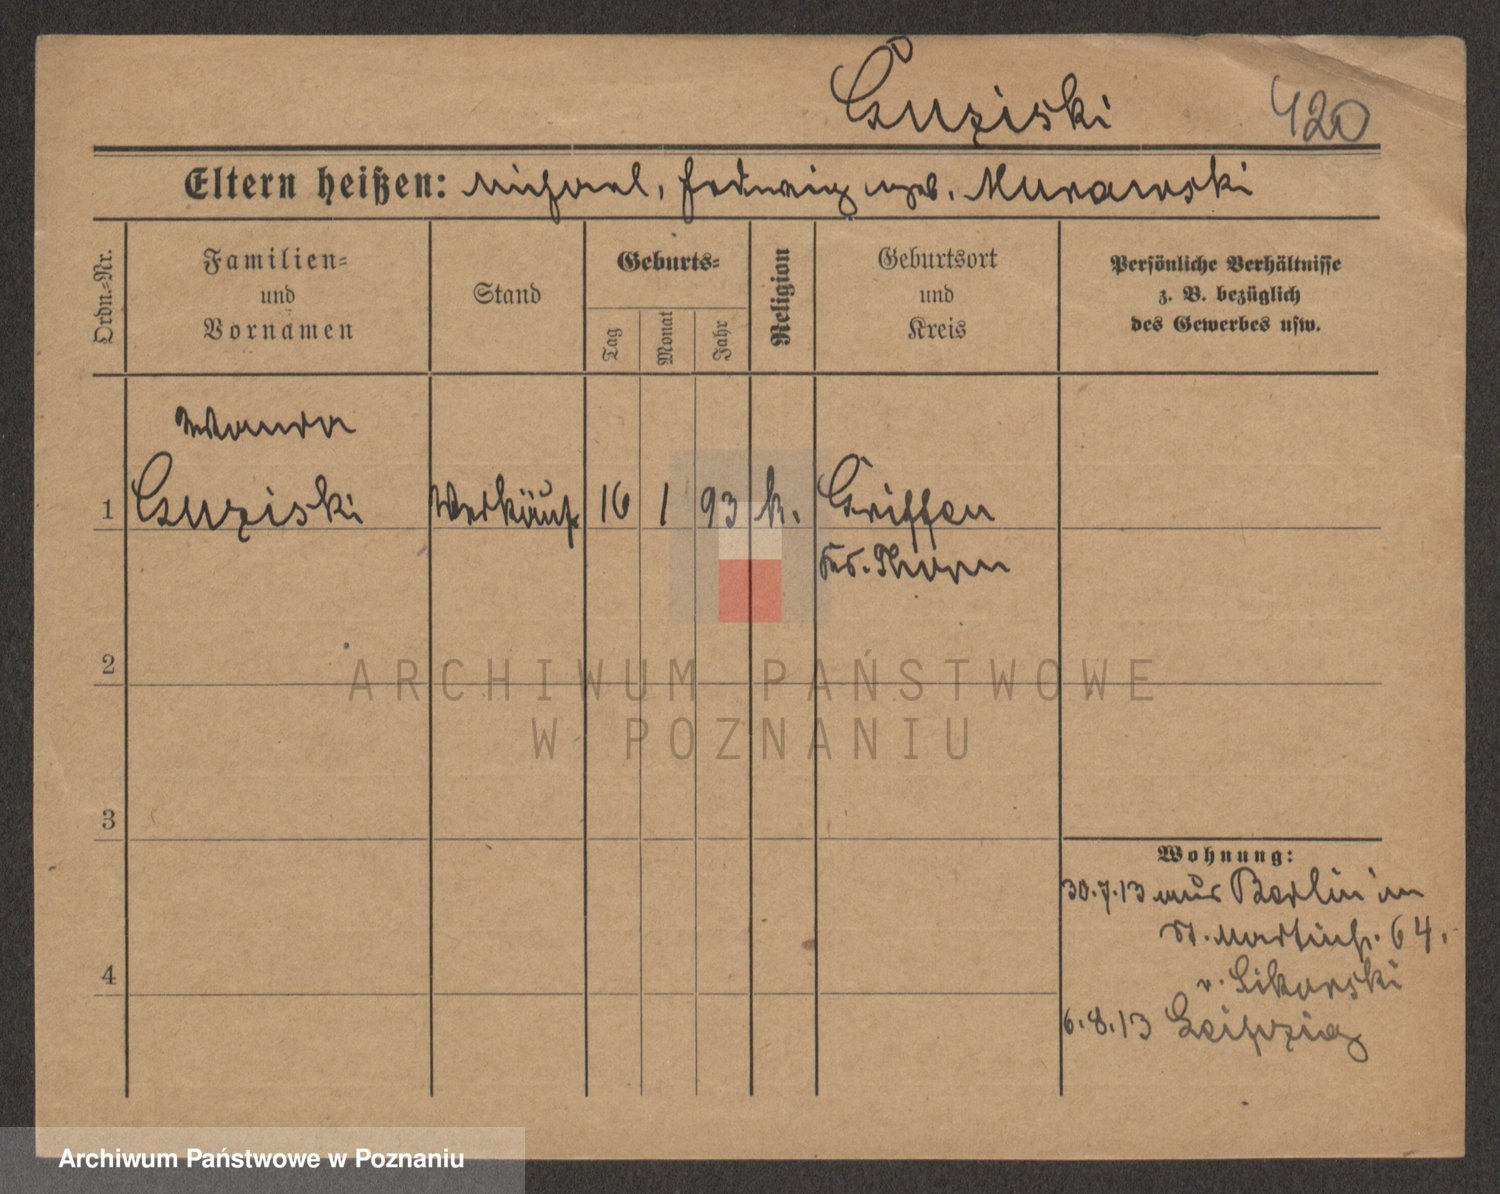 Guziski 420
Eltern heißen: Michael, Hedwig geb. Murawski
Ordn.-Nr.
Familien-
und
Vornamen
Stand
Geburts-
Tag
Monat
Jahr
Religion
Geburtsort
und
Kreis
Persönliche Verhältnisse
z. B. bezüglich
des Gewerbes usw.
Wanda
1 Guziski Verkäuf. 16 1 93 k. Griffen
Krs. Thorn
2
3
4
Wohnung:
30.7.13 aus Berlin in
St. Martinstr. 64.
v. Sikorski
6.8.13 Leipzig
ARCHIWUM PAŃSTWOWE
W POZNANIU
Archiwum Państwowe w Poznaniu